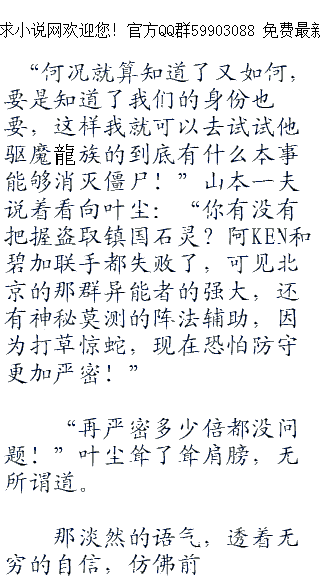 求小说网欢迎您！官方QQ群59903088 免费最新
“何况就算知道了又如何，
要是知道了我们的身份也
要，这样我就可以去试试他
驱魔龍族的到底有什么本事
能够消灭僵尸！”山本一夫
说着看向叶尘：“你有没有
把握盗取镇国石灵？阿KEN和
碧加联手都失败了，可见北
京的那群异能者的强大，还
有神秘莫测的阵法辅助，因
为打草惊蛇，现在恐怕防守
更加严密！”
“再严密多少倍都没问
题！”叶尘耸了耸肩膀，无
所谓道。
那淡然的语气，透着无
穷的自信，仿佛前